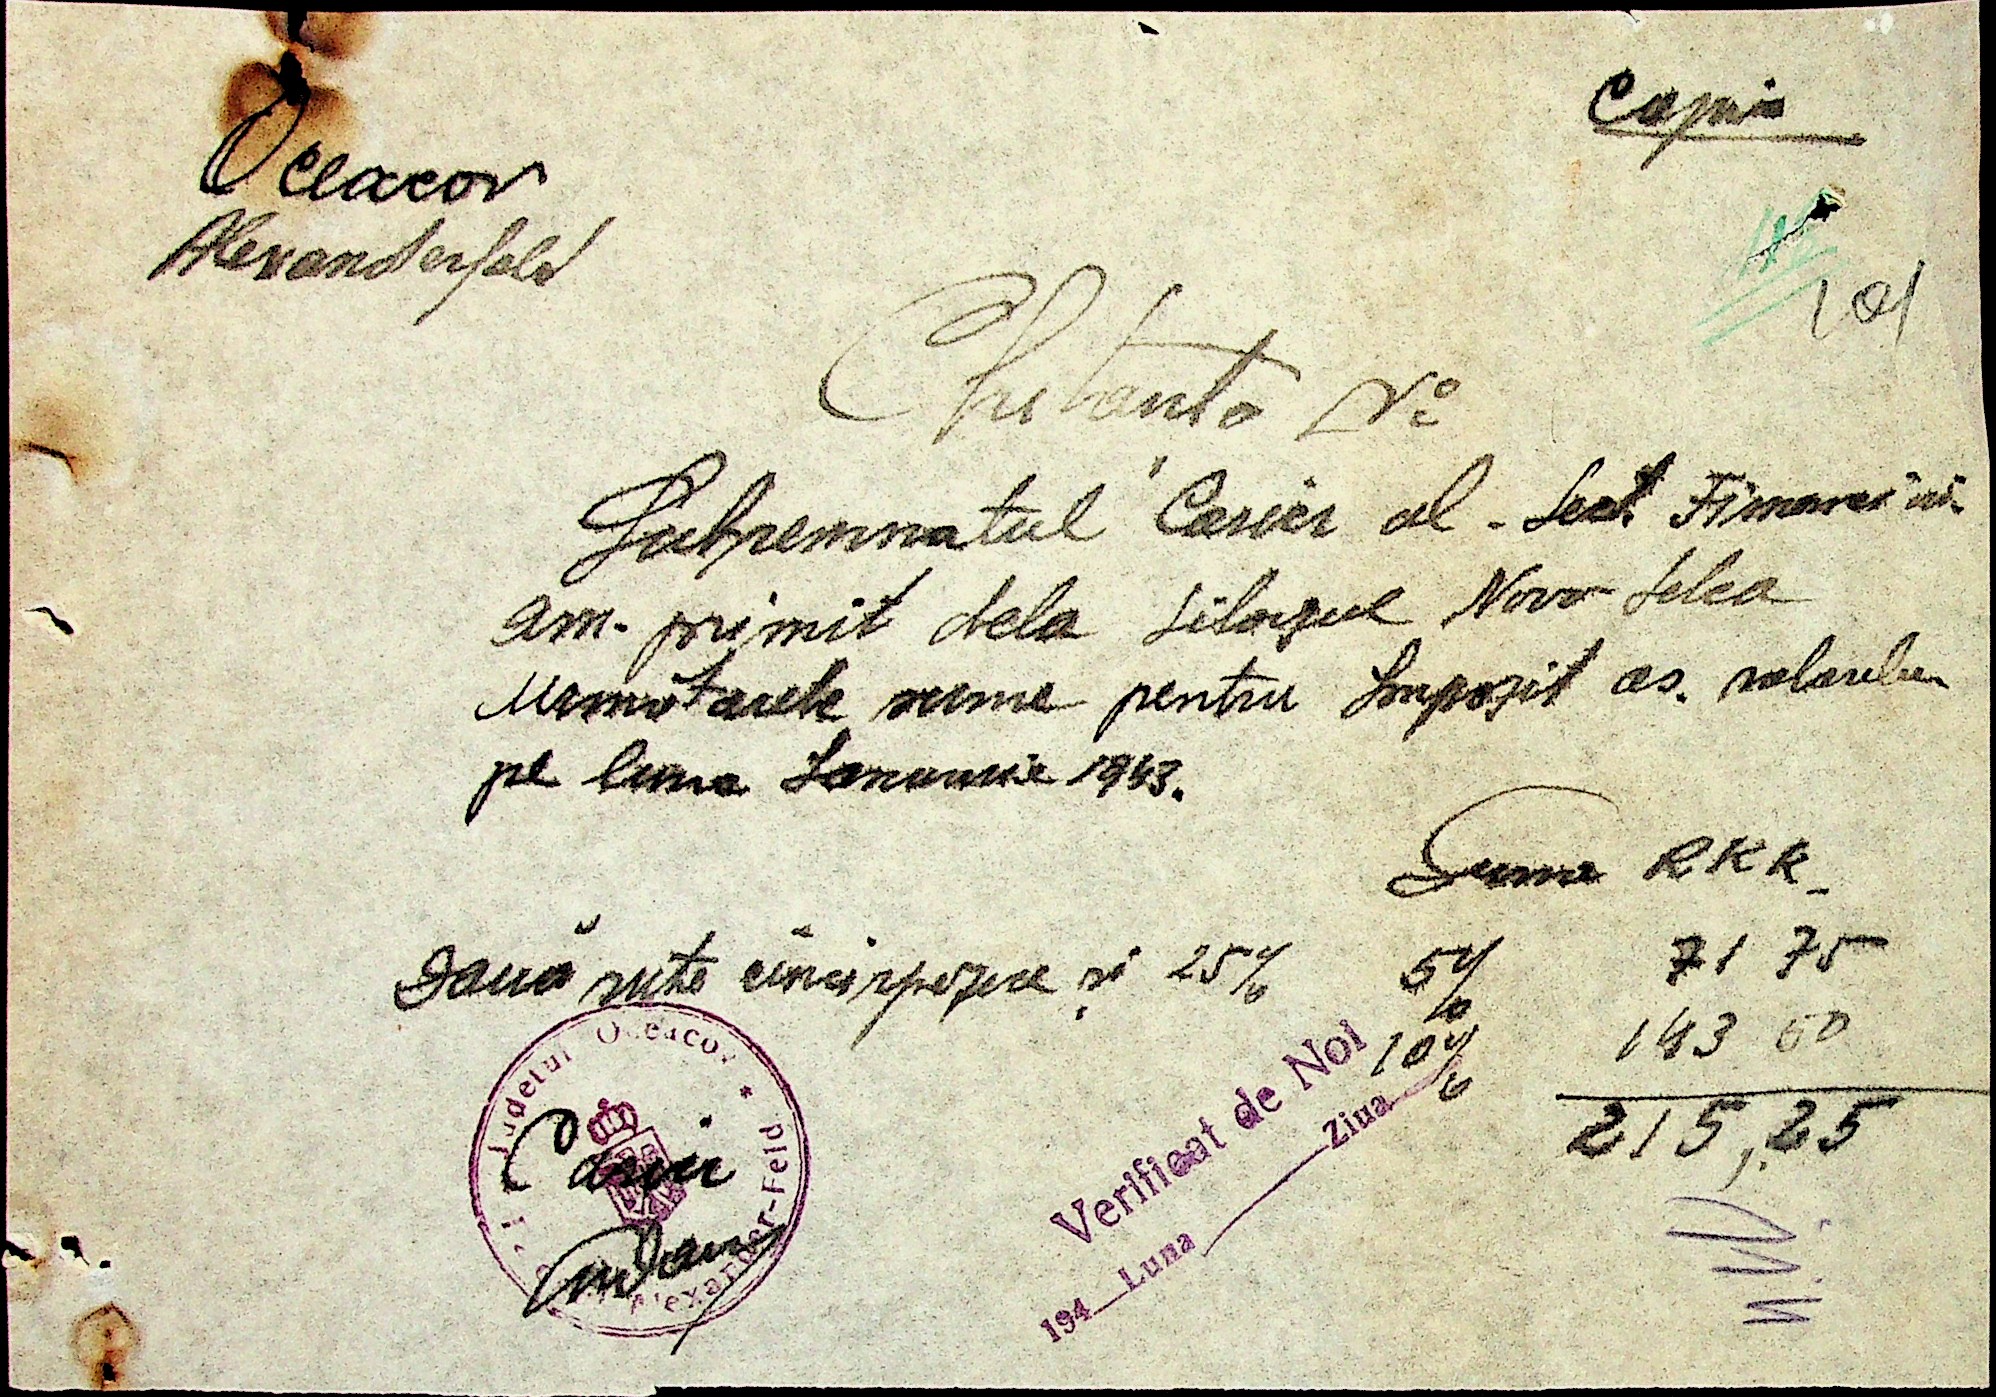 Copie
Oceacov
Alexanderfeld
101
Chitanta No
Subsemnatul Casier al Sect. Financiar
am primit dela Silozul Novo Selca
urmatoarele sume pentru Impozit as. valorilor
pe luna Ianuarie 1943.
Suma RKK
Două sute cincisprezece și 25% 5% 71 75
10% 143 50
215,25
Judetul Oceacov * Alexander-Feld
Casier
Verificat de Noi
194 Luna Ziua